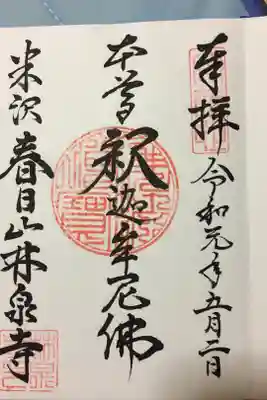 奉拝 令和元年五月二日
本尊 釈迦牟尼佛
米沢 春日山林泉寺